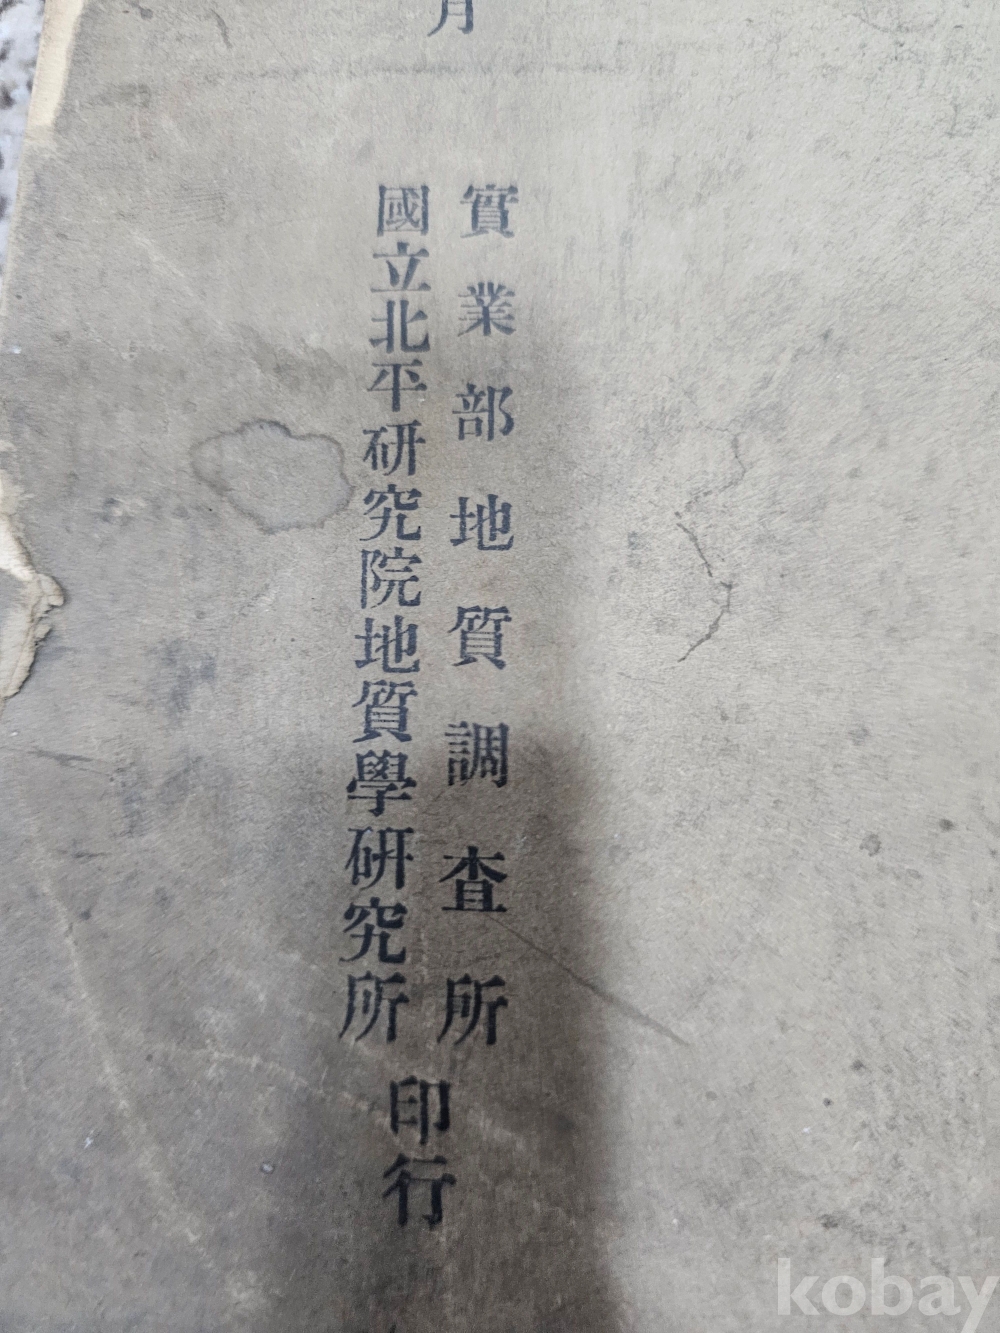 月
實業部地質調查所
國立北平研究院地質學研究所
印行
kobay